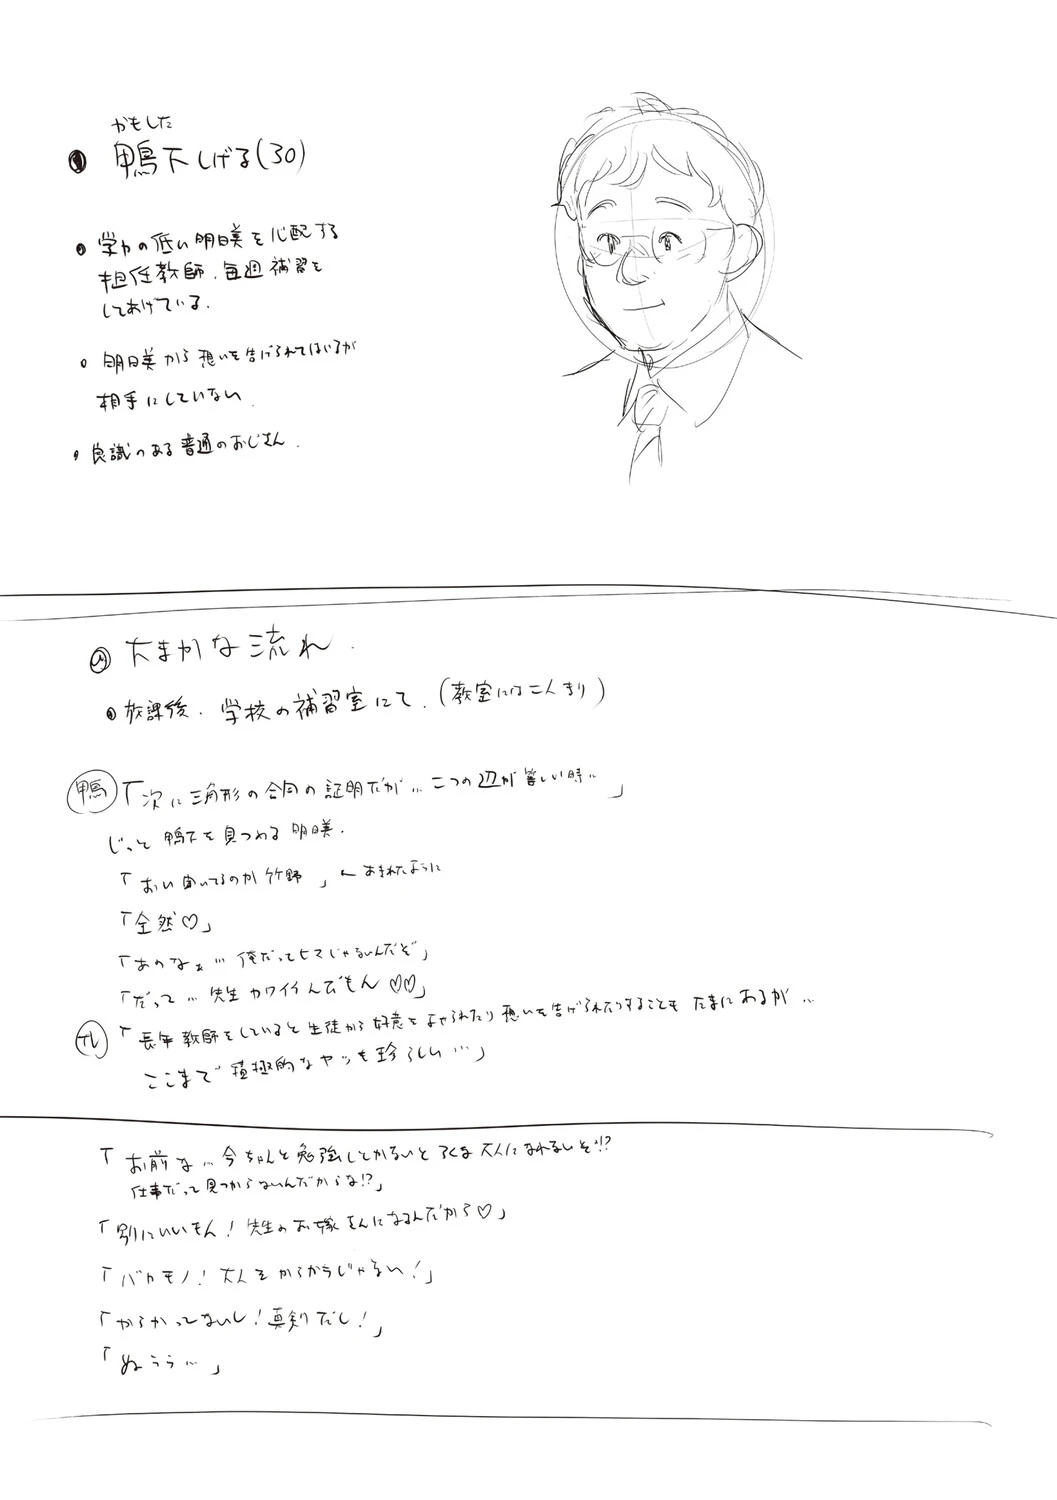 かもした
鴨下しげる(30)
学力の低い明日美を心配する
担任教師.毎週補習を
してあげている.
明日美から想いを告げられてはいるが
相手にしていない.
良識のある普通のおじさん.
大まかな流れ.
放課後.学校の補習室にて.(教室には二人きり)
鴨「次に三角形の合同の証明だが…二つの辺が等しい時…」
じっと鴨下を見つめる明日美.
「おい聞いてるのか竹野」←あきれたように
「全然♡」
「あのなぁ…俺だってヒマじゃないんだぞ」
「だって…先生カワイイんだもん♡♡」
「長年教師をしていると生徒から好意をよせられたり想いを告げられたりすることもたまにあるが…
ここまで積極的なヤツも珍しい…」
「お前な…今ちゃんと勉強しとかないとろくな大人になれないぞ!?
仕事だって見つからないんだからな!?」
「別にいいもん!先生のお嫁さんになるんだから♡」
「バカモノ!大人をからかうじゃない!」
「からかってないし!真剣だし!」
「ぬぅぅ…」